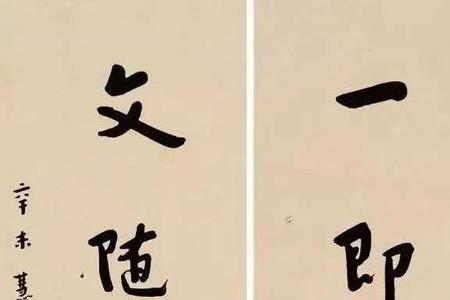 一即
文随
辛未